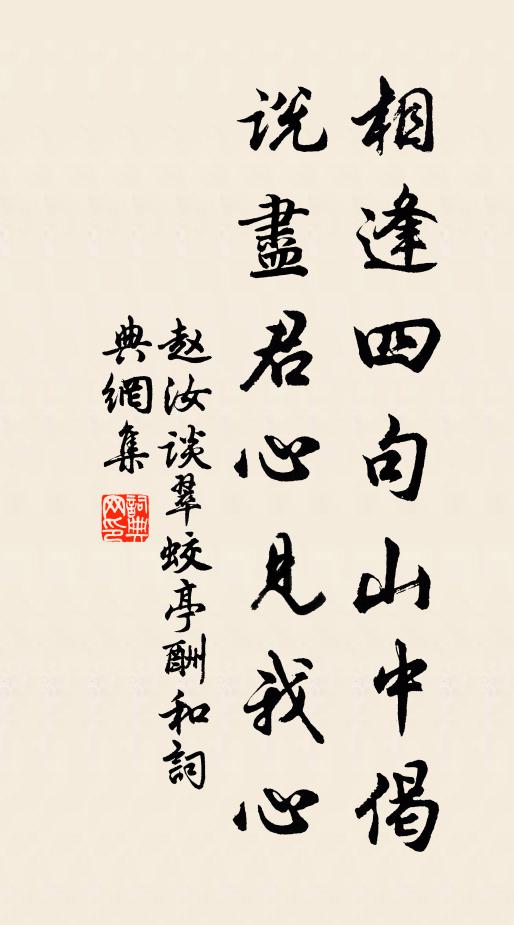 相逢四句山中偈
説盡君心見我心
赵汝谈翠蛟亭酬和詞
典網集
詞典網印